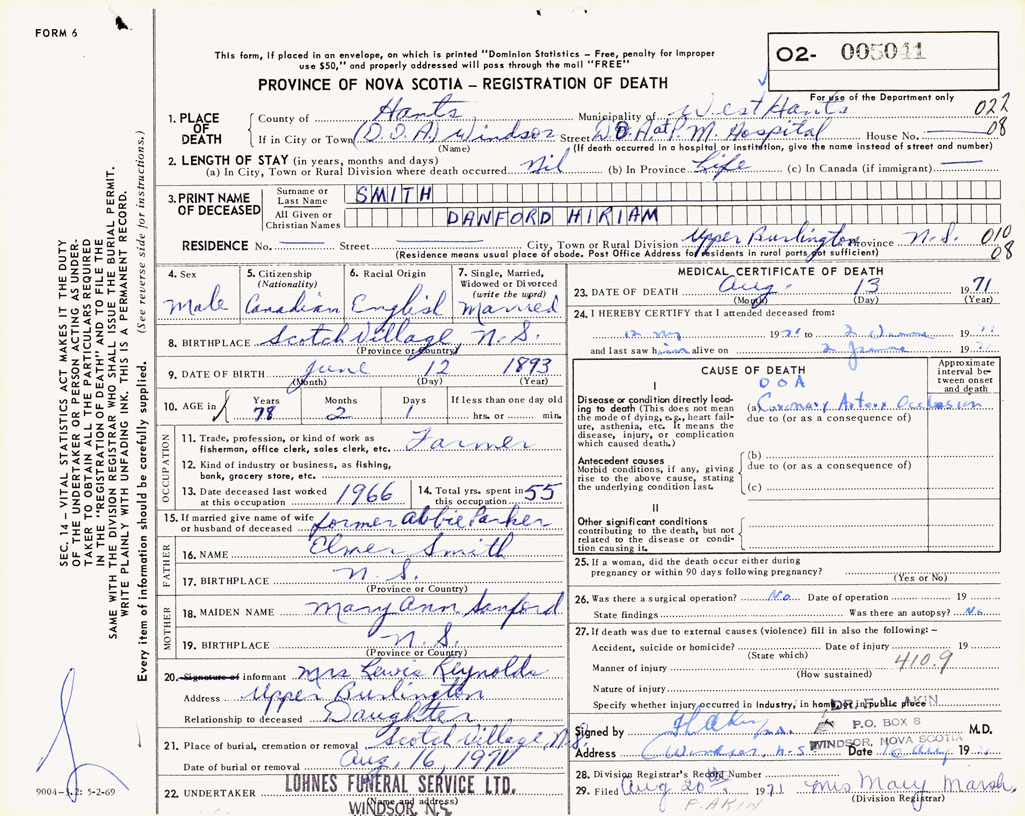 FORM 6
O2- 005041
This form, if placed in an envelope, on which is printed "Dominion Statistics - Free, penalty for improper
use $50," and properly addressed will pass through the mail "FREE"
PROVINCE OF NOVA SCOTIA - REGISTRATION OF DEATH
For use of the Department only
022
08
1. PLACE OF DEATH
County of Hants Municipality of West Hants
If in City or Town (D.O.A) Windsor Street M. Hospital House No.
(Name) (If death occurred in a hospital or institution, give the name instead of street and number)
2. LENGTH OF STAY (in years, months and days)
(a) In City, Town or Rural Division where death occurred Nil (b) In Province Life (c) In Canada (if immigrant)
3. PRINT NAME OF DECEASED
Surname or Last Name SMITH
All Given or Christian Names DANFORD HIRIAM
RESIDENCE No. Street City, Town or Rural Division Upper Burlington Province N.S. 010
08
(Residence means usual place of abode. Post Office Address for residents in rural parts not sufficient)
4. Sex Male
5. Citizenship (Nationality) Canadian
6. Racial Origin English
7. Single, Married, Widowed or Divorced (write the word) Married
8. BIRTHPLACE Scotch Village, N.S.
(Province or Country)
9. DATE OF BIRTH June 12 1893
(Month) (Day) (Year)
10. AGE in Years Months Days If less than one day old
78 2 1 hrs. or min.
OCCUPATION
11. Trade, profession, or kind of work as
fisherman, office clerk, sales clerk, etc. Farmer
12. Kind of industry or business, as fishing,
bank, grocery store, etc.
13. Date deceased last worked at this occupation 1966
14. Total yrs. spent in this occupation 55
15. If married give name of wife
or husband of deceased former Abbie Parker
FATHER
16. NAME Elmer Smith
17. BIRTHPLACE N.S.
(Province or Country)
MOTHER
18. MAIDEN NAME Mary Ann Sanford
19. BIRTHPLACE N.S.
(Province or Country)
20. Signature of informant Mrs Lewis Reynolds
Address Upper Burlington
Relationship to deceased Daughter
21. Place of burial, cremation or removal Scotch Village, N.S.
Date of burial or removal Aug, 16, 1971
22. UNDERTAKER LOHNES FUNERAL SERVICE LTD.
(Name and address)
WINDSOR, N.S.
MEDICAL CERTIFICATE OF DEATH
23. DATE OF DEATH Aug. 13 1971
(Month) (Day) (Year)
24. I HEREBY CERTIFY that I attended deceased from:
19 to
and last saw him alive on 19
CAUSE OF DEATH
Approximate interval between onset and death
I
DOA
Disease or condition directly leading
to death (This does not mean
the mode of dying, e.g., heart failure,
asthenia, etc. It means the
disease, injury, or complication
which caused death.)
(a) Coronary Artery Occlusion
due to (or as a consequence of)
Antecedent causes
Morbid conditions, if any, giving
rise to the above cause, stating
the underlying condition last.
(b)
due to (or as a consequence of)
(c)
II
Other significant conditions
contributing to the death, but not
related to the disease or condition
causing it.
25. If a woman, did the death occur either during
pregnancy or within 90 days following pregnancy?
(Yes or No)
26. Was there a surgical operation? No Date of operation 19
State findings Was there an autopsy? No
27. If death was due to external causes (violence) fill in also the following:-
Accident, suicide or homicide? Date of injury 19
(State which) 410.9
Manner of injury
(How sustained)
Nature of injury
Specify whether injury occurred in Industry, in home, or in public place
DR. F. L. AKIN
P.O. BOX 8
WINDSOR, NOVA SCOTIA
Signed by F L Akin M.D.
Address Windsor, N.S. Date 16 Aug 19
28. Division Registrar's Record Number
29. Filed Aug 20th 1971 Mrs Mary Marsh.
(Division Registrar)
F. AKIN
SEC. 14 - VITAL STATISTICS ACT MAKES IT THE DUTY
OF THE UNDERTAKER OR PERSON ACTING AS UNDER-
TAKER TO OBTAIN ALL THE PARTICULARS REQUIRED
IN THE "REGISTRATION OF DEATH" AND TO FILE THE
SAME WITH THE DIVISION REGISTRAR WHO SHALL ISSUE THE BURIAL PERMIT.
WRITE PLAINLY WITH UNFADING INK. THIS IS A PERMANENT RECORD.
Every item of information should be carefully supplied. (See reverse side for instructions.)
9004-3.2: 5-2-69